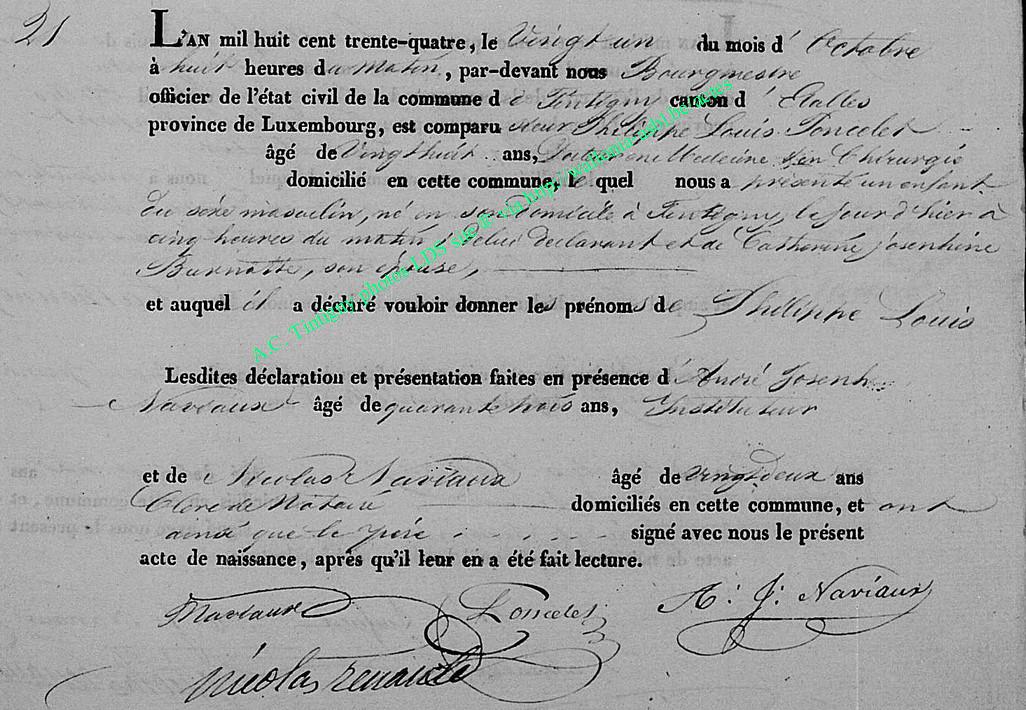 21
L'AN mil huit cent trente-quatre, le Vingt un du mois d' Octobre
à huit heures du Matin, par-devant nous Bourgmestre
officier de l'état civil de la commune de Tintigny canton d' Etalles
province de Luxembourg, est comparu Sieur Philippe Louis Poncelet
âgé de Vingt huit ans, Docteur en Medecine & en Chirurgie
domicilié en cette commune, le quel nous a présenté un enfant
du sexe masculin, né en son domicile à Tintigny, le jour d'hier à
cinq heures du matin, de lui declarant et de Catherine Josephine
Burnotte, son épouse,
et auquel il a déclaré vouloir donner les prénoms de Philippe Louis
Lesdites déclaration et présentation faites en présence d'André Joseph
Naviaux âgé de quarante trois ans, Instituteur
et de Nicolas Naviaux âgé de vingt deux ans
Clerc de Notaire domiciliés en cette commune, et ont
ainsi que le père signé avec nous le présent
acte de naissance, après qu'il leur en a été fait lecture.
Naviaux Poncelet A: J: Naviaux
nicolas
A.C. Tintigny photos LDS sur